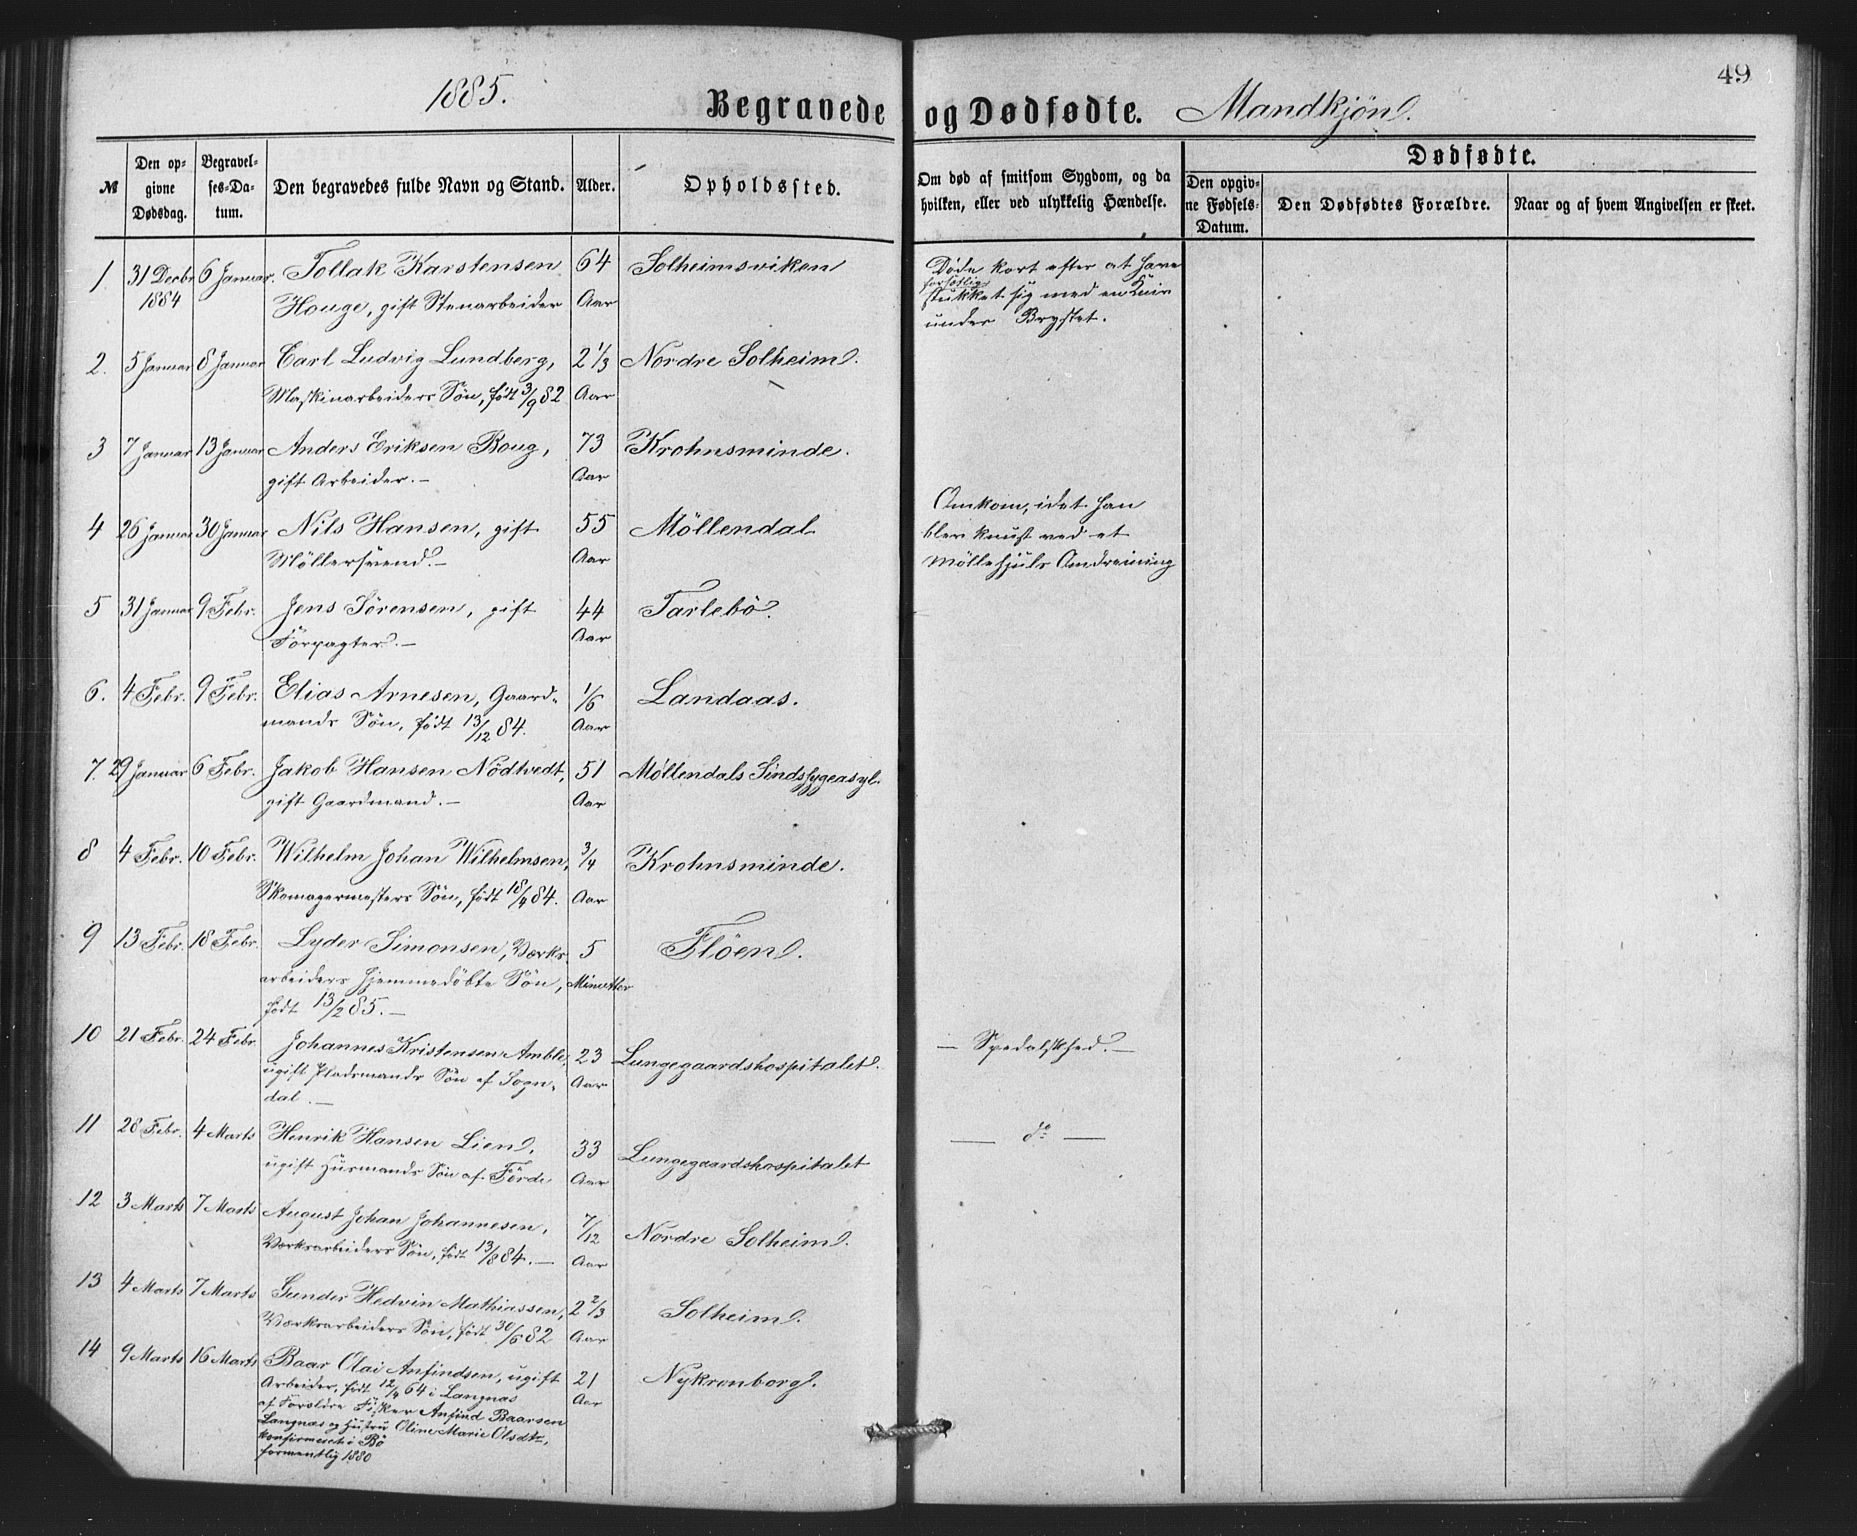 1885.
Begravede og Dødfødte. Mandkjön.
49
№
Den opgivne Dødsdag.
Begravelses-Datum.
Den begravedes fulde Navn og Stand.
Alder.
Opholdssted.
Om død af smitsom Sygdom, og da hvilken, eller ved ulykkelig Hændelse.
Dødfødte.
Den opgivne Fødsels-Datum.
Den Dødfødtes Forældre.
Naar og af hvem Angivelsen er skeet.
1 31 Decbr 6 Januar. Tollak Karstensen 64 Solheimsviken Døde kort efter at have
1884 Houge, gift Stenarbeider Aar forsætlig stukket sig med en Kniv
under Brystet.
2. 5 Januar 8 Januar Carl Ludvig Lundberg, 2 1/3 Nordre Solheim.
Maskinarbeiders Sön, födt 3/9 82 Aar
3 7 Januar 13 Januar Anders Eriksen Boug, 73 Krohnsminde.
gift Arbeider. — Aar
4 26 Januar 30 Januar Nils Hansen, gift 55 Möllendal Omkom, idet han
Möllersvend. — Aar blev knust ved et
Möllehjuls Omdreining
5 31 Januar 9 Febr. Jens Sörensen, gift 44 Tarlebö.
Forpagter. — Aar
6. 4 Febr. 9 Febr. Elias Arnesen, Gaard- 1/6 Landaas.
mands Sön, födt 13/12 84. Aar
7. 29 Januar 6 Febr. Jakob Hansen Nödtvedt, 51 Møllendals Sindssygeasyl.
gift Gaardmand. — Aar
8 4 Febr. 10 Febr. Wilhelm Johan Wilhelmsen, 3/4 Krohnsminde.
Skomagermesters Sön, födt 18/4 84. Aar
9 13 Febr. 18 Febr. Lyder Simonsen, Værks- 5 Flöen.
arbeiders hjemmedöbte Sön, Minutter
födt 13/2 85. —
10 21 Febr. 24 Febr. Johannes Kristensen Amble, 23 Lungegaardshospitalet. — Spedalskhed. —
ugift Pladsmands Sön af Sogn- Aar
dal. —
11 28 Febr. 4 Marts Henrik Hansen Lien, 33 Lungegaardshospitalet — do —
ugift Husmands Sön af Förde Aar
12 3 Marts 7 Marts August Johan Johannesen, 7/12 Nordre Solheim.
Værksarbeiders Sön, födt 13/8 84. — Aar
13 4 Marts 7 Marts Gunder Hedvin Mathiassen, 2 2/3 Solheim.
Værksarbeiders Sön, födt 30/6 82 Aar
14 9 Marts 16 Marts Baar Olai Anfindsen, ugift 21 Nykronborg.
Arbeider, födt 12/4 64 i Langnas Aar
af Foreldre Fisker Anfind Baarsen
Langnas og Hustru Oline Marie Olsdtr,
konfirmeret i Bö
formentlig 1880